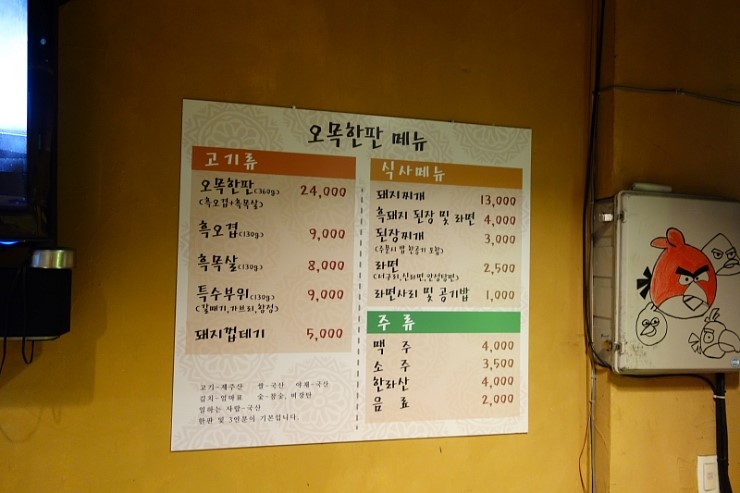 오목한판 메뉴
고기류
오목한판(360g) 24,000
(흑오겹+흑목살)
흑오겹(130g) 9,000
흑목살(130g) 8,000
특수부위(130g) 9,000
(갈매기,가브리,항정)
돼지껍데기 5,000
고기-제주산 쌀-국산 야채-국산
김치-엄마표 숯-참숯, 비장탄
일하는 사람-국산
한판 및 3인분이 기본입니다.
식사메뉴
돼지찌개 13,000
흑돼지 된장 및 라면 4,000
된장찌개 3,000
(주문시 밥 한공기 포함)
라면 2,500
(너구리,신라면,안성탕면)
라면사리 및 공기밥 1,000
주류
맥주 4,000
소주 3,500
한라산 4,000
음료 2,000